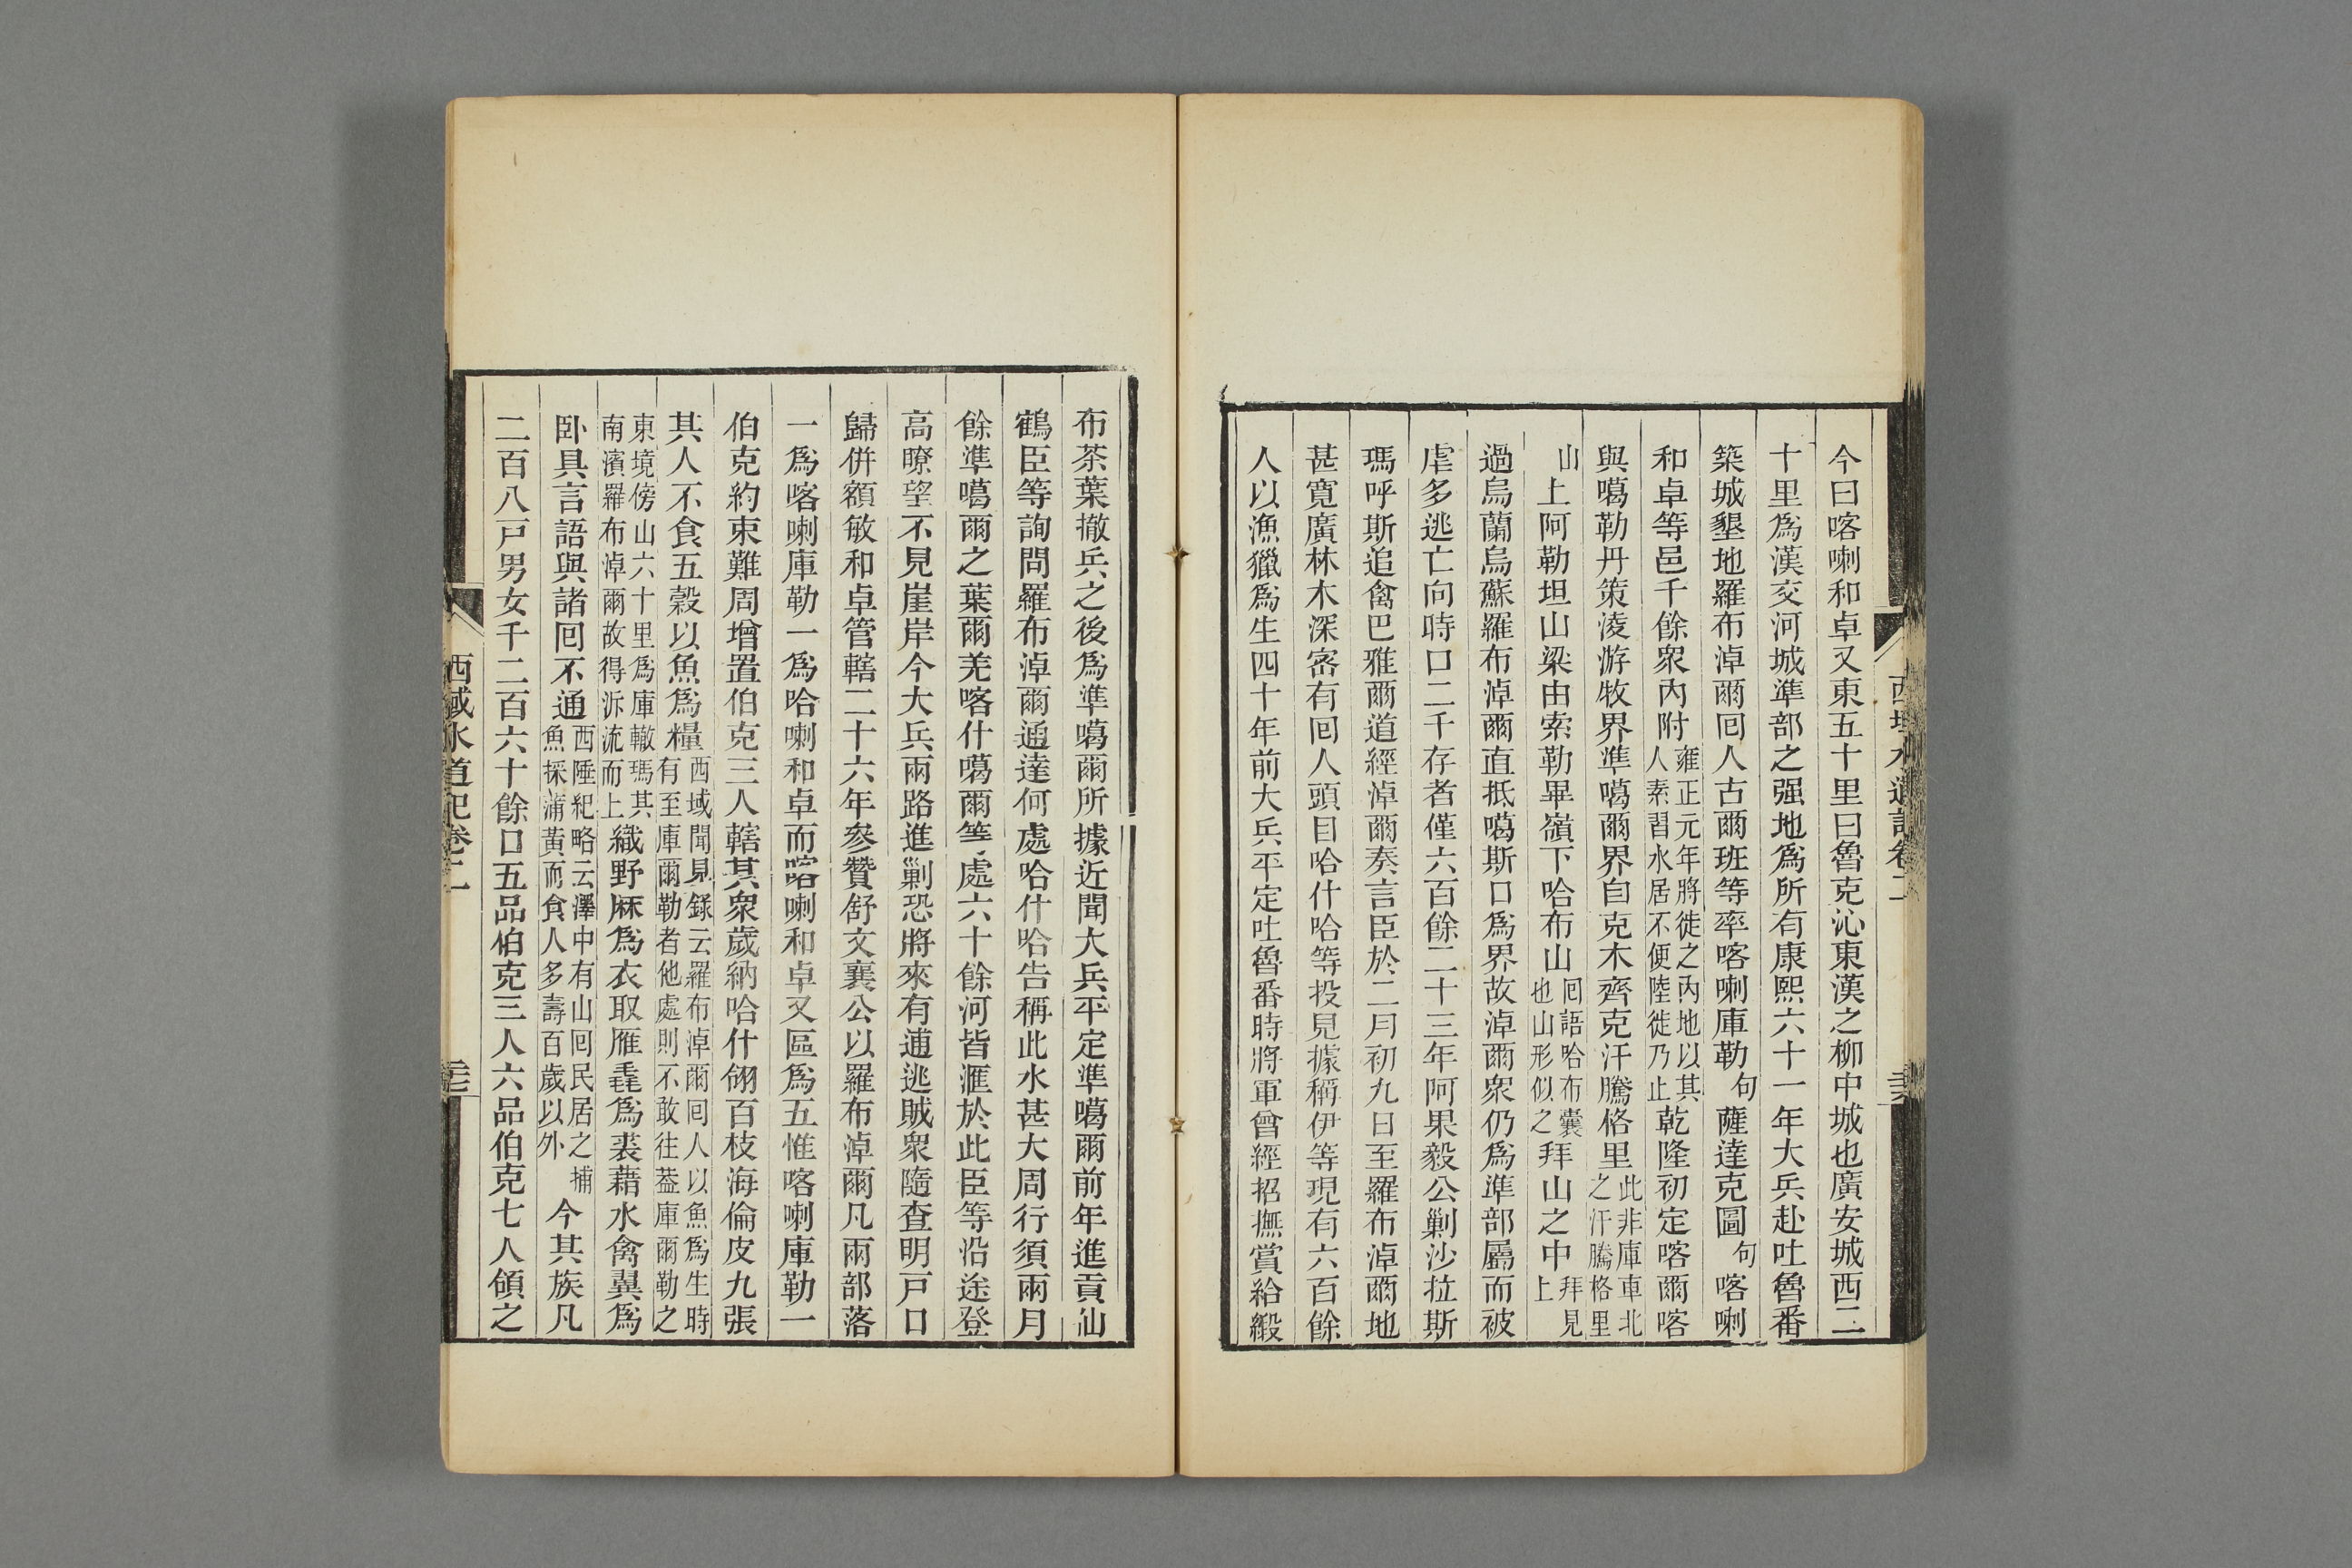 今曰喀喇和卓又東五十里曰魯克沁東漢之柳中城也廣安城西二
十里爲漢交河城準部之强地爲所有康熙六十一年大兵赴吐魯番
築城墾地羅布淖爾囘人古爾班等率喀喇庫勒句薩達克圖句喀喇
和卓等邑千餘衆內附雍正元年將徙之內地以其人素習水居不便陸徙乃止乾隆初定喀爾喀
與噶勒丹策淩游牧界準噶爾界自克木齊克汗騰格里此非庫車北之汗騰格里
山上阿勒坦山梁由索勒畢嶺下哈布山囘語哈布囊也山形似之拜山之中拜見上
過烏蘭烏蘇羅布淖爾直抵噶斯口爲界故淖爾衆仍爲準部屬而被
虐多逃亡向時口二千存者僅六百餘二十三年阿果毅公剿沙拉斯
瑪呼斯追禽巴雅爾道經淖爾奏言臣於二月初九日至羅布淖爾地
甚寬廣林木深密有囘人頭目哈什哈等投見據稱伊等現有六百餘
人以漁獵爲生四十年前大兵平定吐魯番時將軍曾經招撫賞給緞
西域水道記卷二
布茶葉撤兵之後爲準噶爾所據近聞大兵平定準噶爾前年進貢汕
鶴臣等詢問羅布淖爾通達何處哈什哈告稱此水甚大周行須兩月
餘準噶爾之葉爾羌喀什噶爾等處六十餘河皆滙於此臣等沿途登
高瞭望不見崖岸今大兵兩路進剿恐將來有逋逃賊衆隨查明戸口
歸併額敏和卓管轄二十六年參贊舒文襄公以羅布淖爾凡兩部落
一爲喀喇庫勒一爲哈喇和卓而喀喇和卓又區爲五惟喀喇庫勒一
伯克約束難周增置伯克三人轄其衆歲納哈什翎百枝海倫皮九張
其人不食五穀以魚爲糧西域聞見錄云羅布淖爾囘人以魚爲生時有至庫爾勒者他處則不敢往葢庫爾勒之
東境傍山六十里爲庫轍瑪其南濱羅布淖爾故得泝流而上織野麻爲衣取雁毳爲裘藉水禽翼爲
臥具言語與諸囘不通西陲紀略云澤中有山囘民居之捕魚採蒲黃而食人多壽百歲以外今其族凡
二百八戸男女千二百六十餘口五品伯克三人六品伯克七人領之
西域水道記卷二